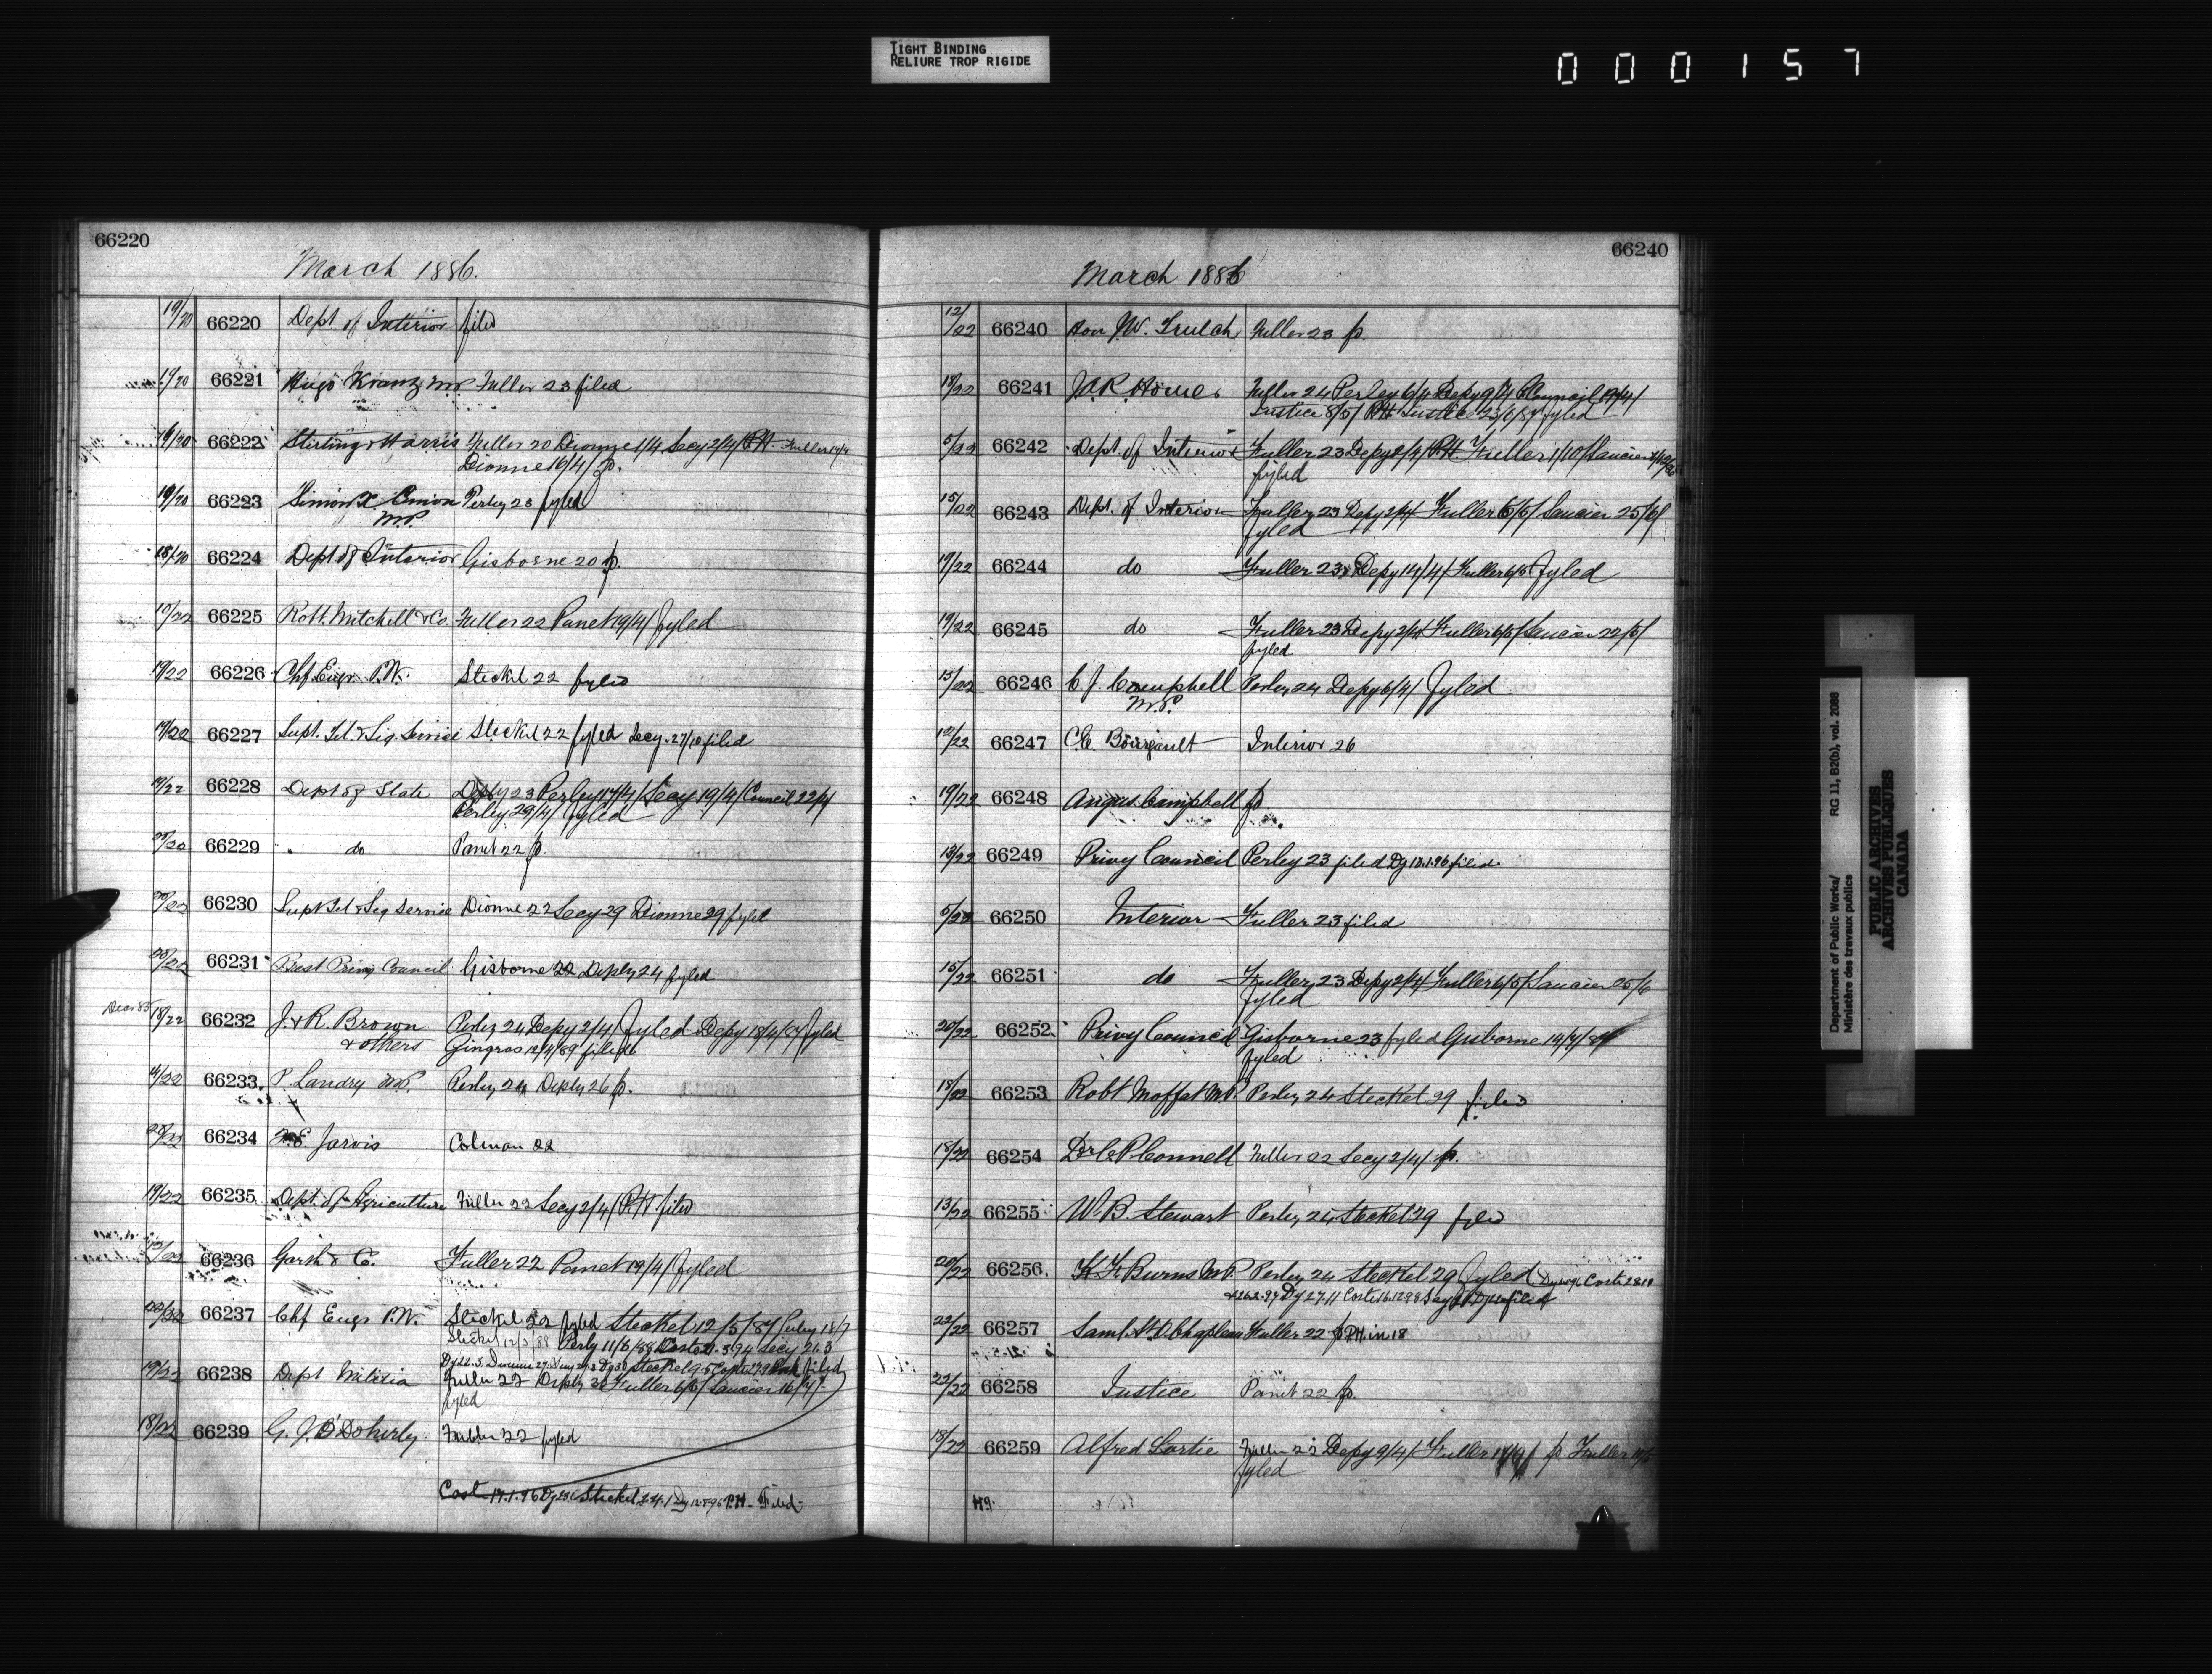 TIGHT BINDING
RELIURE TROP RIGIDE
000157
66220
March 1886.
19/20 66220 Dept of Interior filed
19/20 66221 Hugo Kranz M.P. Fuller 23 filed
66222 Stirling & Harris Fuller 20 Dionne 1/4 Secy 2/4/ P.H. Fuller
Dionne 16/4/ p.
19/20 66223 Simon X. Perley 23 fyled
M.P.
18/20 66224 Dept of Interior Gisborne 20 p.
66225 Robt. Mitchell & Co. Fuller 22 Panet 19/4/ fyled
19/22 66226 Chf. Engr. P.W. Steckel 22 fyled
19/22 66227 Supt. Tel. & Sig. Service Steckel 22 fyled Secy. 27/10 filed
19/22 66228 Dept of State Deputy 23 Perley 17/4/ Secy 19/4/ Council 22/4
Perley 29/4/ fyled
66229 " do Panet 22 p.
66230 Supt Tel & Sig Service Dionne 22 Secy 29 Dionne 29 fyled
20/22 66231 Prest Privy Council Gisborne 22 Deputy 24 fyled
Decr 85 18/22 66232 J. & R. Brown Perley 24 Depy 2/4/ fyled Depy 18/4/ fyled
& others Gingras 12/4/89 filed
66233 P. Landry M.P. Perley 24 Deputy 26 p.
66234 Jarvis Colman 22
19/22 66235 Dept. of Agriculture Fuller 22 Secy 2/4/ P.H filed
66236 Garth & Co. Fuller 22 Panet 19/4/ fyled
66237 Chf Engr P.W. Steckel 22 fyled Steckel 12/5/87 Perley 13/7
Steckel 12/3/88 Perly 11/6/88 Coste 21.3.94 Secy 21.3
Steckel 9.5 filed
19/22 66238 Dept Militia Fuller 22 Deputy Fuller 6/5/ Saucier 16/7/
fyled
18/22 66239 G. J. O'Doherty. Fuller 22 fyled
Cost 17.1.96 Steckel 24.1 P.H. Filed
66240
March 1886
12/22 66240 Hon J.W. Trutch Fuller 23 p.
18/22 66241 J.R. Howes Fuller 24 Perley 6/4 Depy 9/4 P Council 19/4/
Justice 8/5/ P.H. Justice fyled
5/22 66242 Dept. of Interior Fuller 23 Depy 2/4/ P.H. Fuller 1/10/ Saucier
fyled
15/22 66243 Dept. of Interior Fuller 23 Depy 2/4 Fuller 6/5/ Saucier 25/6/
fyled
19/22 66244 do Fuller 23 Depy 14/4/ Fuller 6/5 fyled
19/22 66245 do Fuller 23 Depy 2/4 Fuller 6/5/ Saucier 22/5/
fyled
15/22 66246 C. J. Campbell Perley 24 Depy 6/4/ fyled
M.P.
12/22 66247 C.E. Bourgault Interior 26
19/22 66248 Angus Campbell p
18/22 66249 Privy Council Perley 23 filed Dy 18.1.96 filed
5/22 66250 Interior Fuller 23 filed
15/22 66251 do Fuller 23 Depy 2/4/ Fuller 6/5/ Saucier 25/6
fyled
20/22 66252 Privy Council Gisborne 23 fyled Gisborne 14/4/
fyled
18/22 66253 Robt Moffat M.P. Perley 24 Steckel 29 filed
18/22 66254 Dr C. P. Connell Fuller 22 Secy 2/4/ p.
13/22 66255 W. B. Stewart Perley 24 Steckel 29 fyled
20/22 66256 K. F. Burns M.P. Perley 24 Steckel 29 fyled
Dy 27.11 Coste filed
22/22 66257 Saml. Chapleau Fuller 22 p P.H. in 18
22/22 66258 Justice Panet 22 p.
18/22 66259 Alfred Lortie Fuller 23 Depy 9/4/ Fuller p Fuller
fyled
Department of Public Works/
Ministère des travaux publics
RG 11, B2(b), vol. 2088
PUBLIC ARCHIVES
ARCHIVES PUBLIQUES
CANADA